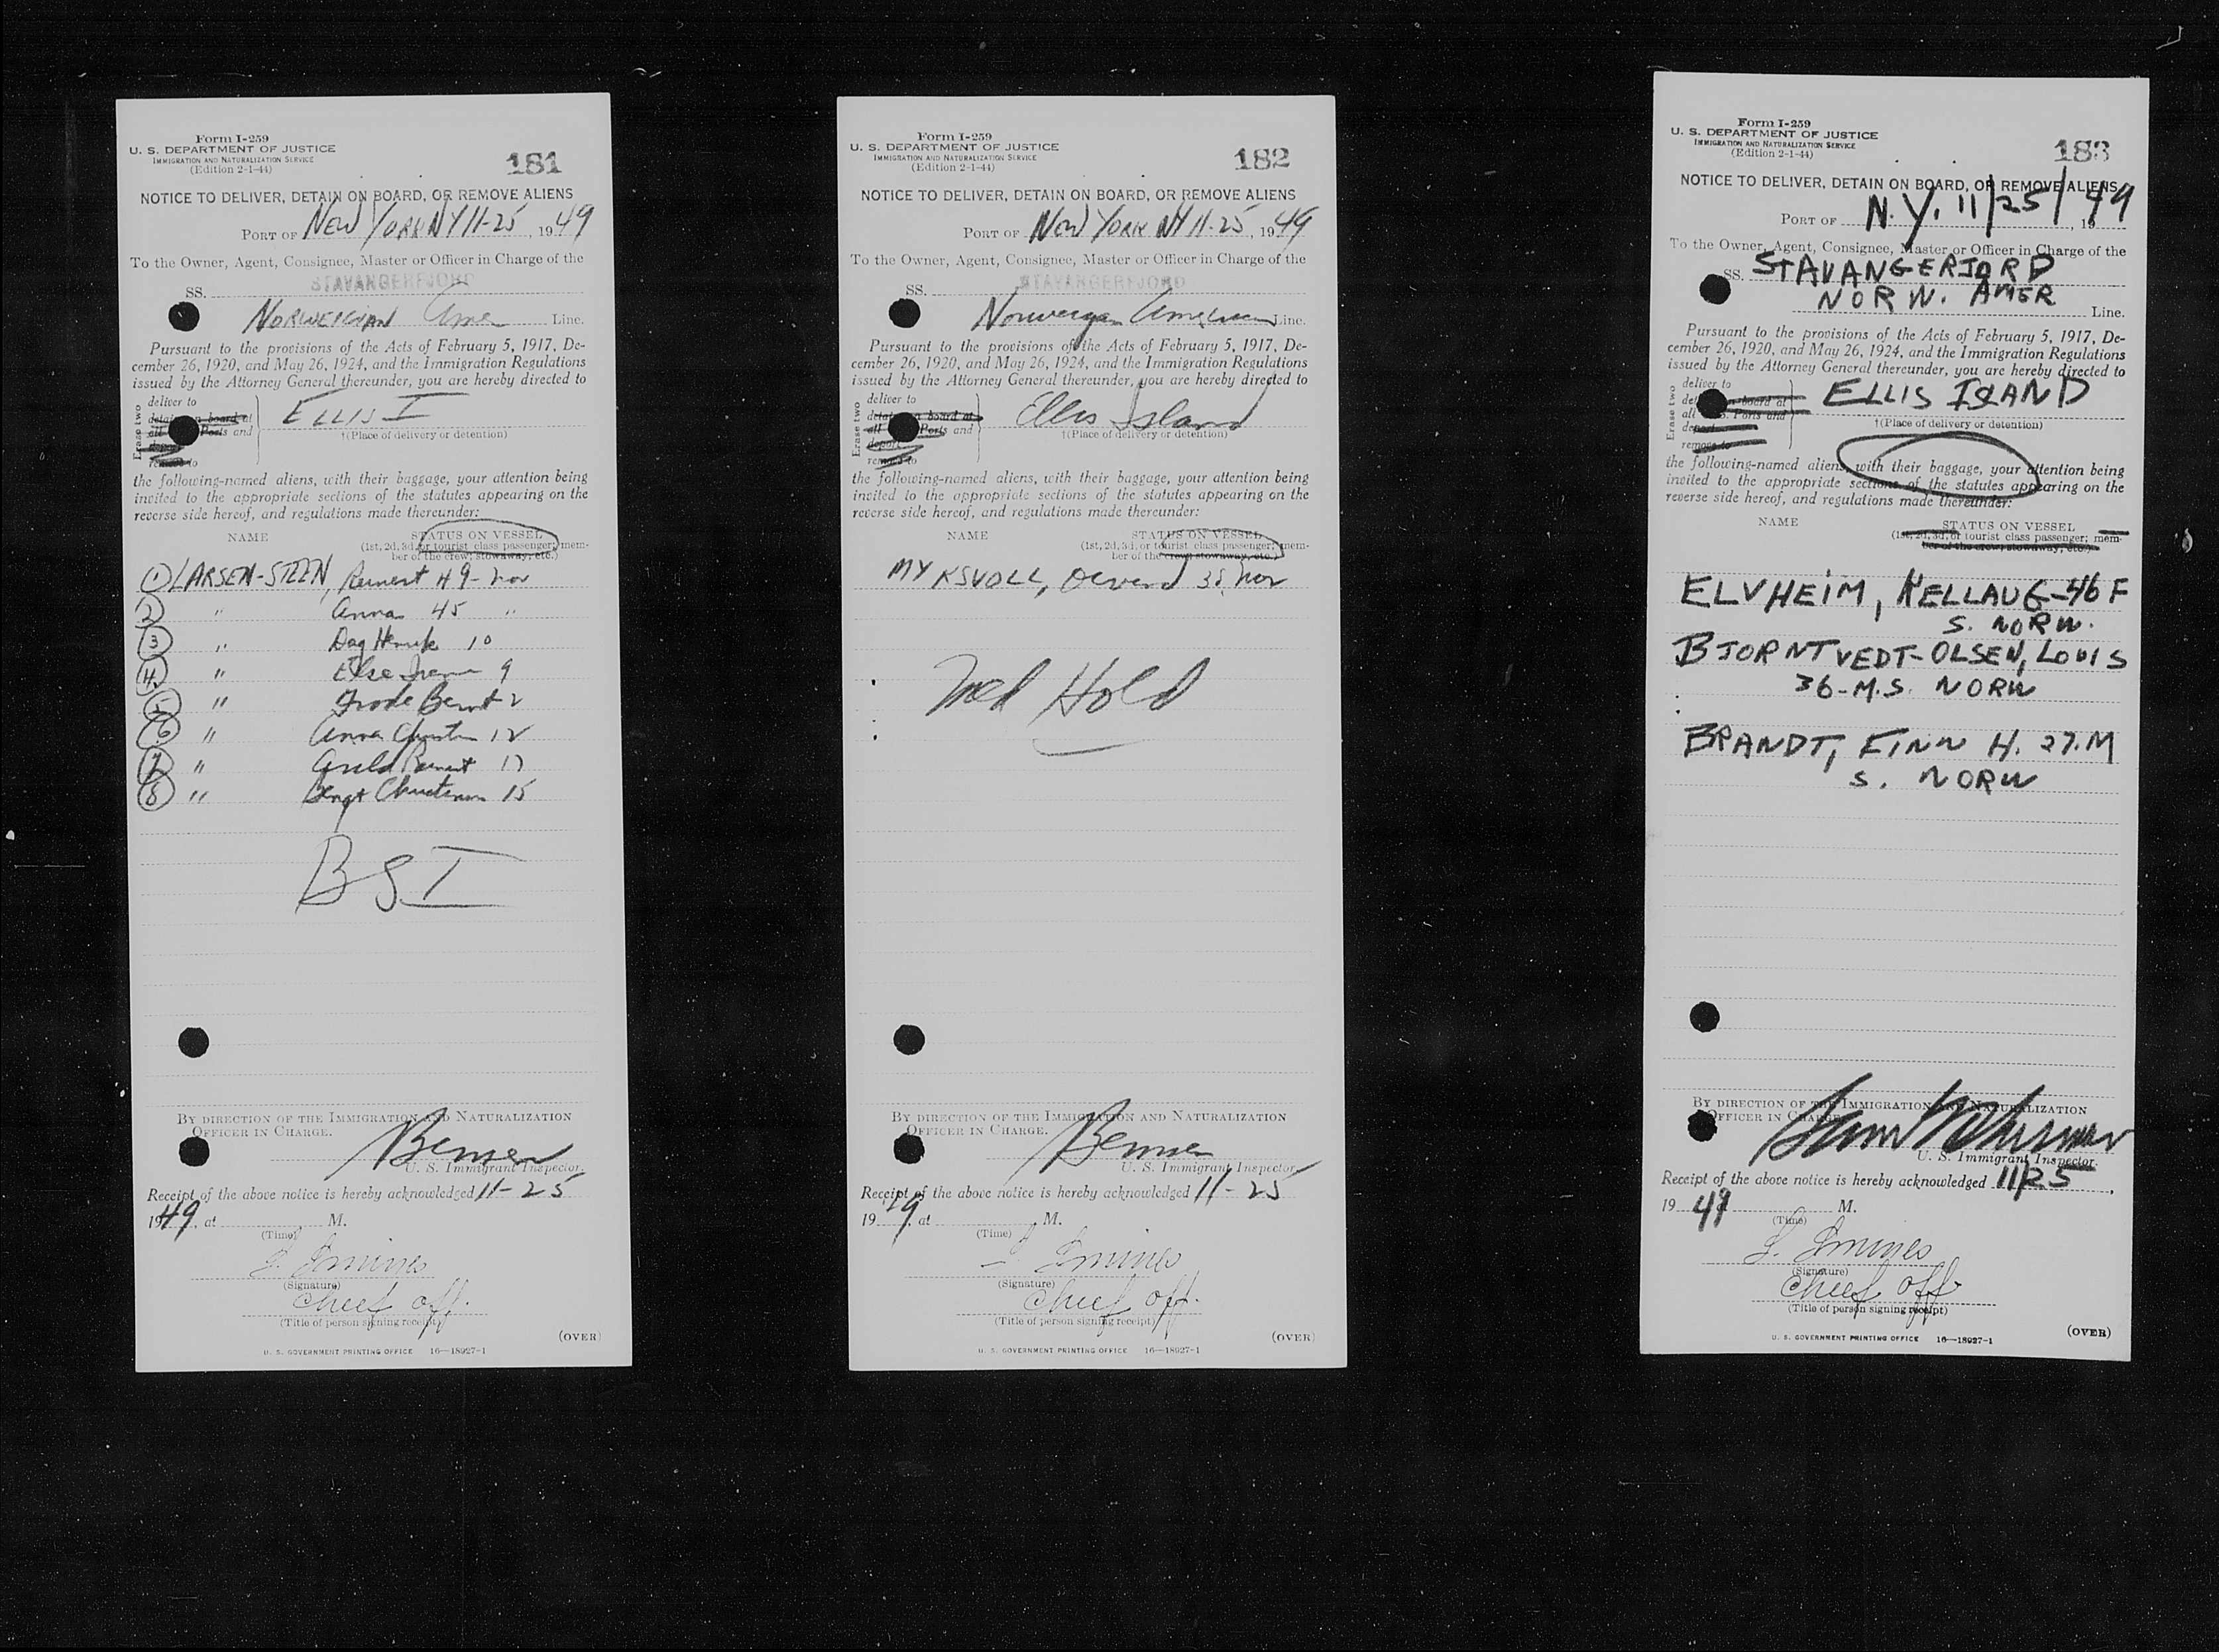 Form I-259
U. S. DEPARTMENT OF JUSTICE
IMMIGRATION AND NATURALIZATION SERVICE
(Edition 2-1-44)
181
NOTICE TO DELIVER, DETAIN ON BOARD, OR REMOVE ALIENS
PORT OF NEW YORK NY 11-25, 1949
To the Owner, Agent, Consignee, Master or Officer in Charge of the
SS. STAVANGERFJORD
NORWEIGIAN Amer Line.
Pursuant to the provisions of the Acts of February 5, 1917, De-
cember 26, 1920, and May 26, 1924, and the Immigration Regulations
issued by the Attorney General thereunder, you are hereby directed to
Erase two
deliver to
detain on board at
all Ports and
deport
remove to
ELLIS I
†(Place of delivery or detention)
the following-named aliens, with their baggage, your attention being
invited to the appropriate sections of the statutes appearing on the
reverse side hereof, and regulations made thereunder:
NAME
STATUS ON VESSEL
(1st, 2d, 3d, or tourist class passenger; mem-
ber of the crew; stowaway, etc.)
1 LARSEN-STEEN, 49- nor
2 " Anna 45 "
3 " Dag Henrik 10
4 " Else 9
5 " Frode Bernt 2
6 " Anna 12
7 " 17
8 " Bengt 15
BSI
BY DIRECTION OF THE IMMIGRATION AND NATURALIZATION
OFFICER IN CHARGE.
U. S. Immigrant Inspector.
Receipt of the above notice is hereby acknowledged 11-25
1949, at M.
(Time)
(Signature)
Chief off.
(Title of person signing receipt)
(OVER)
U. S. GOVERNMENT PRINTING OFFICE 16—18927-1
Form I-259
U. S. DEPARTMENT OF JUSTICE
IMMIGRATION AND NATURALIZATION SERVICE
(Edition 2-1-44)
182
NOTICE TO DELIVER, DETAIN ON BOARD, OR REMOVE ALIENS
PORT OF New York NY 11-25, 1949
To the Owner, Agent, Consignee, Master or Officer in Charge of the
SS. STAVANGERFJORD
Norwegian American Line.
Pursuant to the provisions of the Acts of February 5, 1917, De-
cember 26, 1920, and May 26, 1924, and the Immigration Regulations
issued by the Attorney General thereunder, you are hereby directed to
Erase two
deliver to
detain on board at
all Ports and
deport
remove to
Ellis Island
†(Place of delivery or detention)
the following-named aliens, with their baggage, your attention being
invited to the appropriate sections of the statutes appearing on the
reverse side hereof, and regulations made thereunder:
NAME
STATUS ON VESSEL
(1st, 2d, 3d, or tourist class passenger; mem-
ber of the crew; stowaway, etc.)
MYKSVOLL, 38, nor
Med Hold
BY DIRECTION OF THE IMMIGRATION AND NATURALIZATION
OFFICER IN CHARGE.
U. S. Immigrant Inspector.
Receipt of the above notice is hereby acknowledged 11-25
1949, at M.
(Time)
(Signature)
Chief off.
(Title of person signing receipt)
(OVER)
U. S. GOVERNMENT PRINTING OFFICE 16—18927-1
Form I-259
U. S. DEPARTMENT OF JUSTICE
IMMIGRATION AND NATURALIZATION SERVICE
(Edition 2-1-44)
183
NOTICE TO DELIVER, DETAIN ON BOARD, OR REMOVE ALIENS
PORT OF N.Y. 11/25/49, 19
To the Owner, Agent, Consignee, Master or Officer in Charge of the
SS. STAVANGERJORD
NORW. AMER
Line.
Pursuant to the provisions of the Acts of February 5, 1917, De-
cember 26, 1920, and May 26, 1924, and the Immigration Regulations
issued by the Attorney General thereunder, you are hereby directed to
Erase two
deliver to
detain on board at
all U.S. Ports and
deport
remove to
ELLIS ISLAND
†(Place of delivery or detention)
the following-named aliens, with their baggage, your attention being
invited to the appropriate sections of the statutes appearing on the
reverse side hereof, and regulations made thereunder:
NAME
STATUS ON VESSEL
(1st, 2d, 3d, or tourist class passenger; mem-
ber of the crew; stowaway, etc.)
ELVHEIM, KELLAUG-46 F
S. NORW.
BJORNTVEDT-OLSEN, LOUIS
36-M.S. NORW
BRANDT, FINN H. 27.M
S. NORW
BY DIRECTION OF THE IMMIGRATION AND NATURALIZATION
OFFICER IN CHARGE
U. S. Immigrant Inspector.
Receipt of the above notice is hereby acknowledged 11/25,
1949 M.
(Time)
(Signature)
Chief off
(Title of person signing receipt)
(OVER)
U. S. GOVERNMENT PRINTING OFFICE 16—18927-1